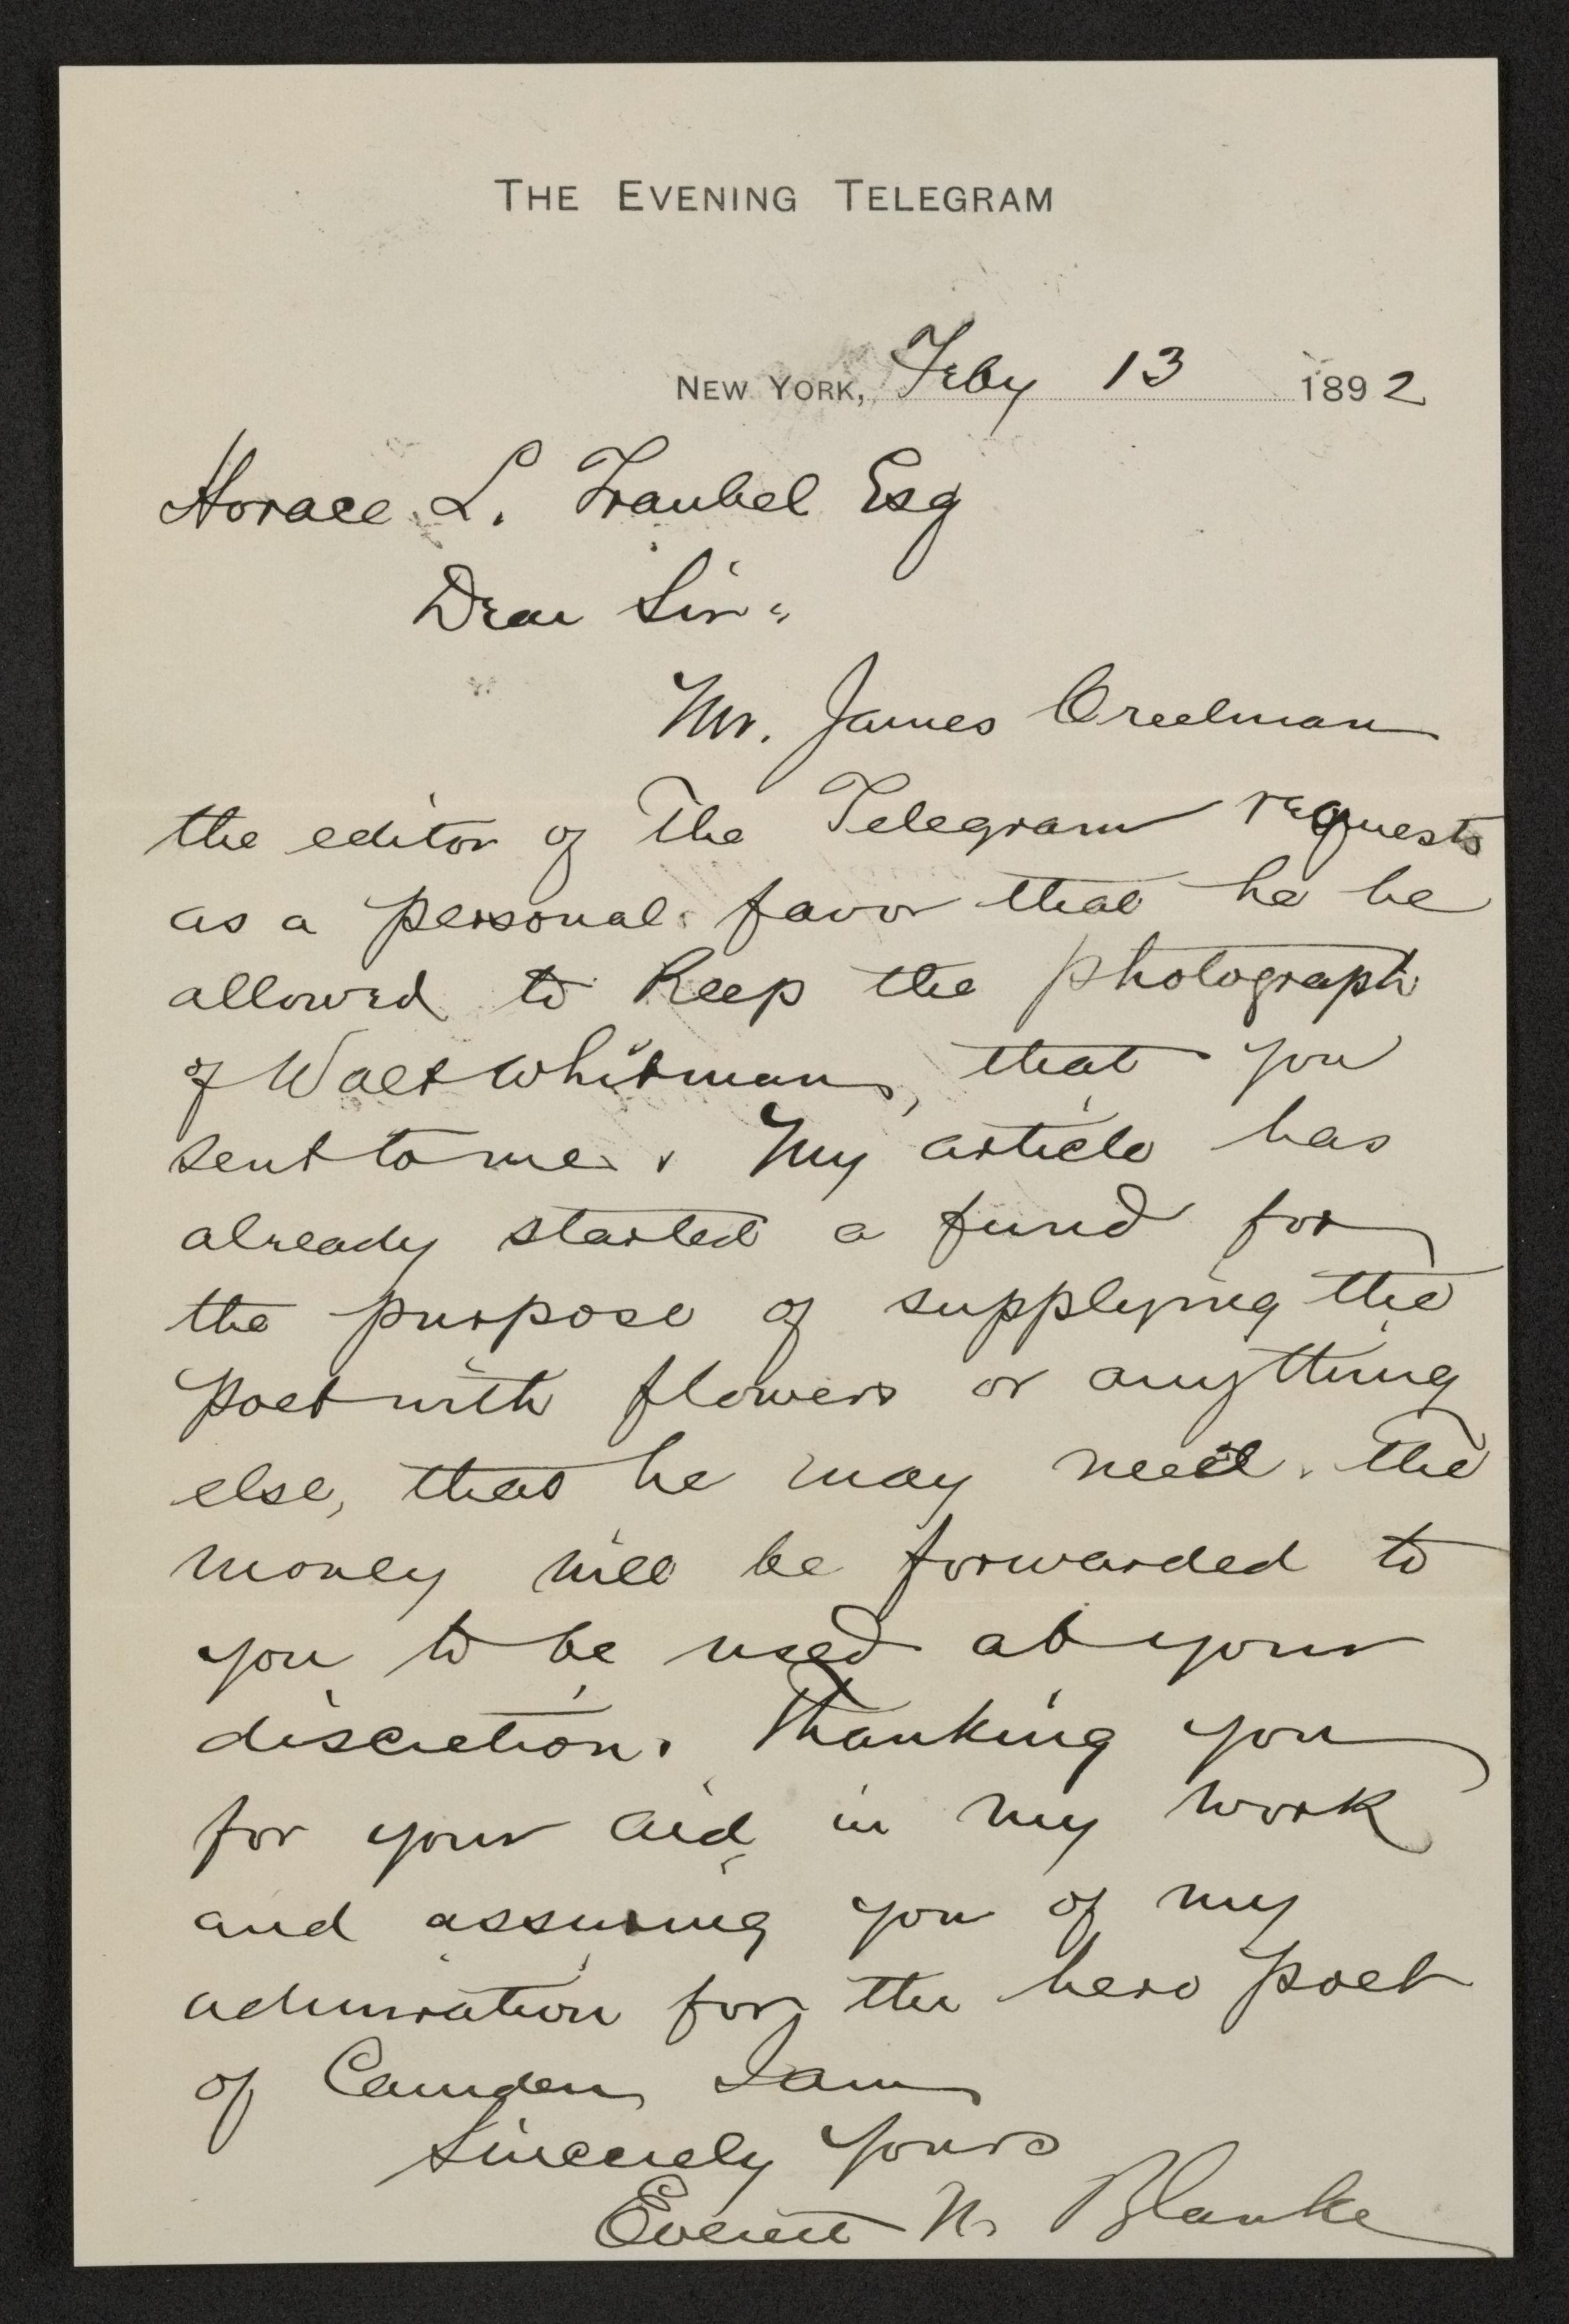 THE EVENING TELEGRAM
NEW YORK, Feby 13 1892
Horace L. Traubel Esq
Dear Sir:
Mr. James Creelman
the editor of The Telegram requests
as a personal favor that he be
allowed to keep the photograph
of Walt Whitman, that you
sent to me. My article has
already started a fund for
the purpose of supplying the
poet with flowers or anything
else, that he may need. The
money will be forwarded to
you to be used at your
discretion. Thanking you
for your aid in my work
and assuring you of my
admiration for the hero poet
of Camden I am
Sincerely Yours
Everett N. Blanke